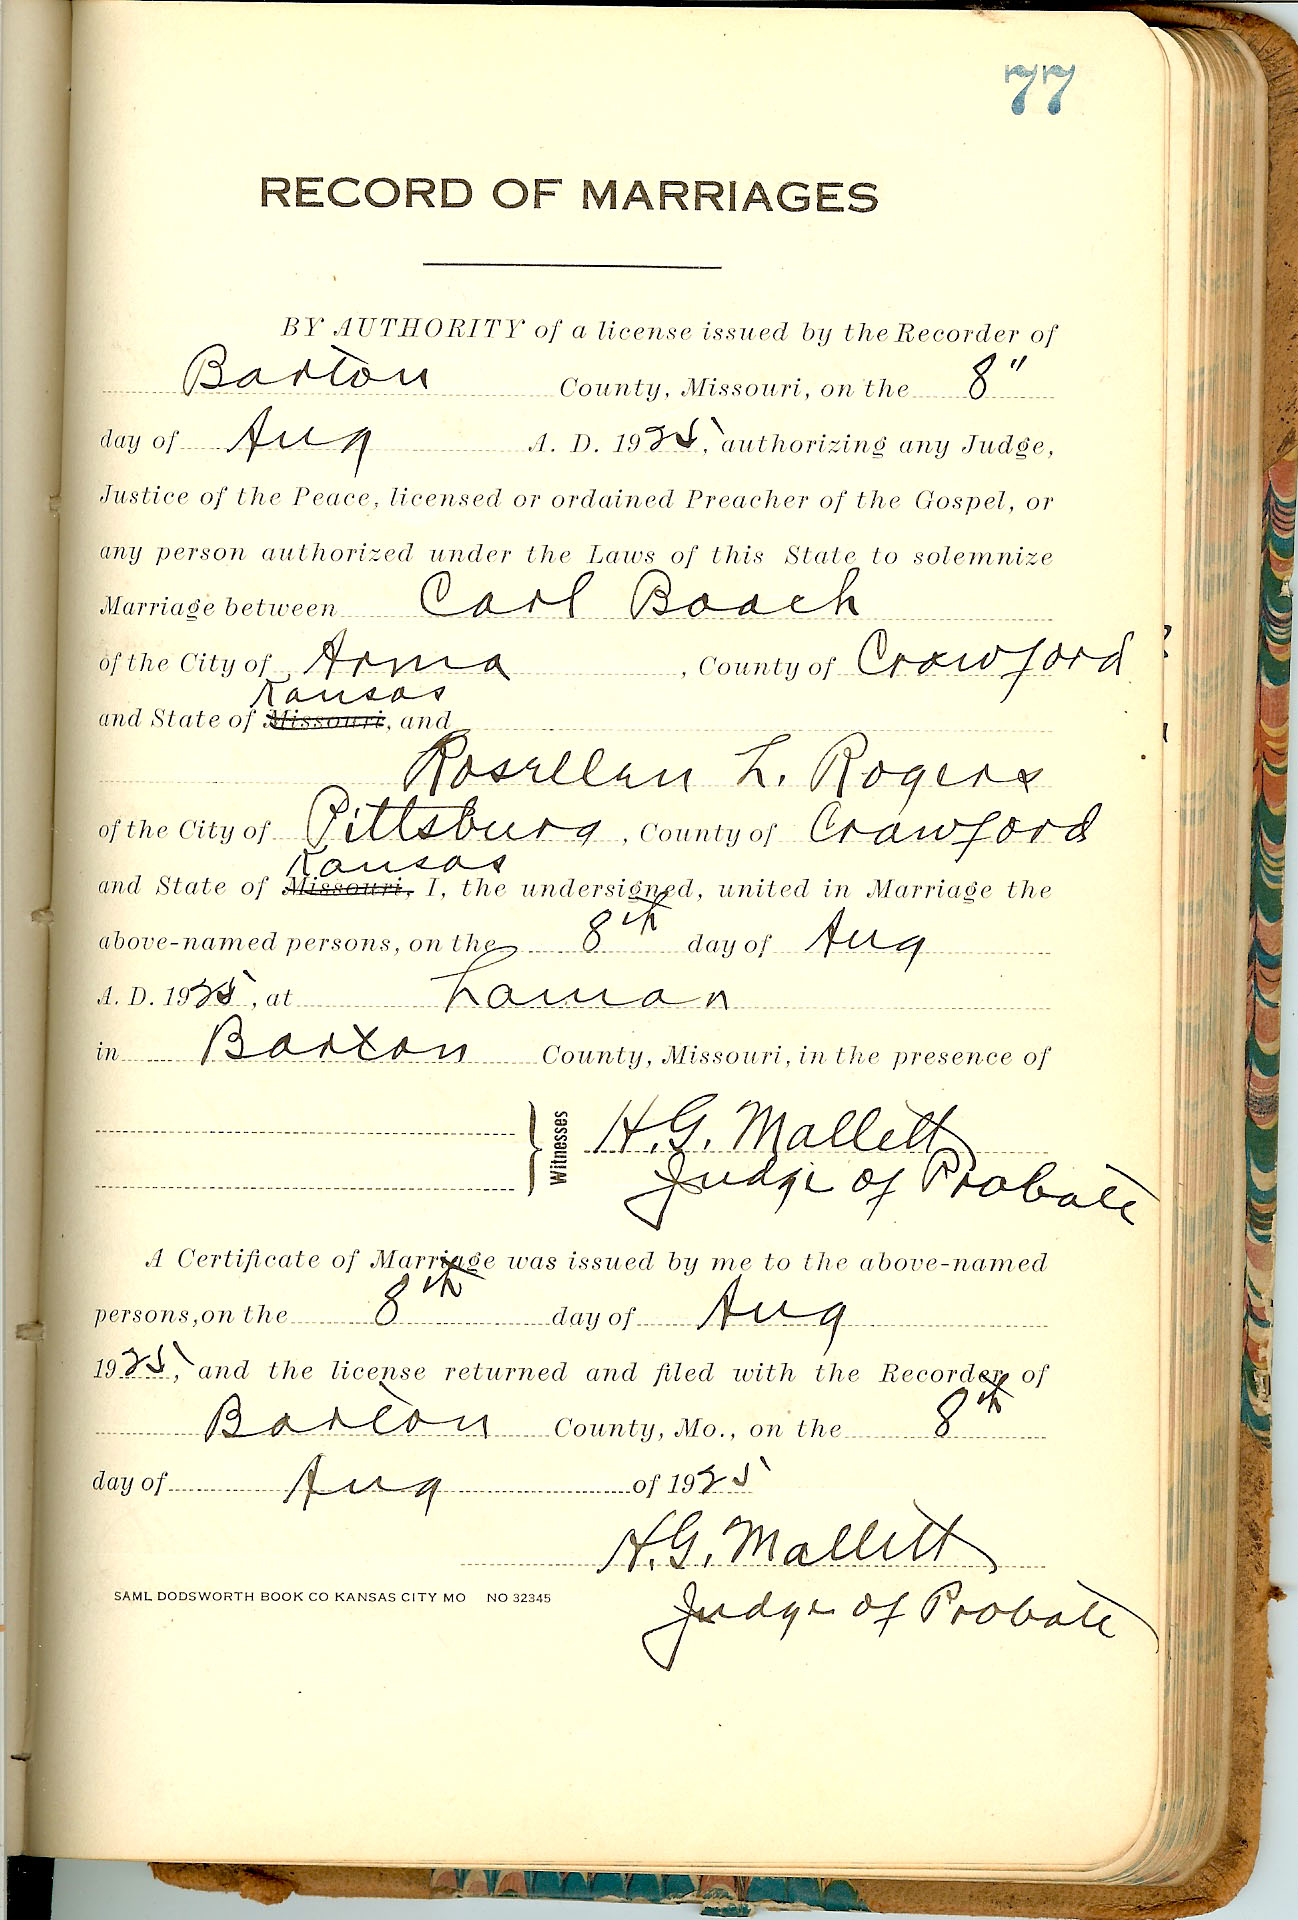 77
RECORD OF MARRIAGES
BY AUTHORITY of a license issued by the Recorder of
Barton County, Missouri, on the 8"
day of Aug A. D. 1925, authorizing any Judge,
Justice of the Peace, licensed or ordained Preacher of the Gospel, or
any person authorized under the Laws of this State to solemnize
Marriage between Carl Boach
of the City of Arma , County of Crawford
Kansas
and State of Missouri, and
Rosellen L. Rogers
of the City of Pittsburg , County of Crawford
Kansas
and State of Missouri, I, the undersigned, united in Marriage the
above-named persons, on the 8th day of Aug
A. D. 1925, at Lamar
in Barton County, Missouri, in the presence of
Witnesses H.G. Mallett
Judge of Probate
A Certificate of Marriage was issued by me to the above-named
persons, on the 8th day of Aug
1925, and the license returned and filed with the Recorder of
Barton County, Mo., on the 8th
day of Aug of 1925
H.G. Mallett
SAML DODSWORTH BOOK CO KANSAS CITY MO NO 32345
Judge of Probate